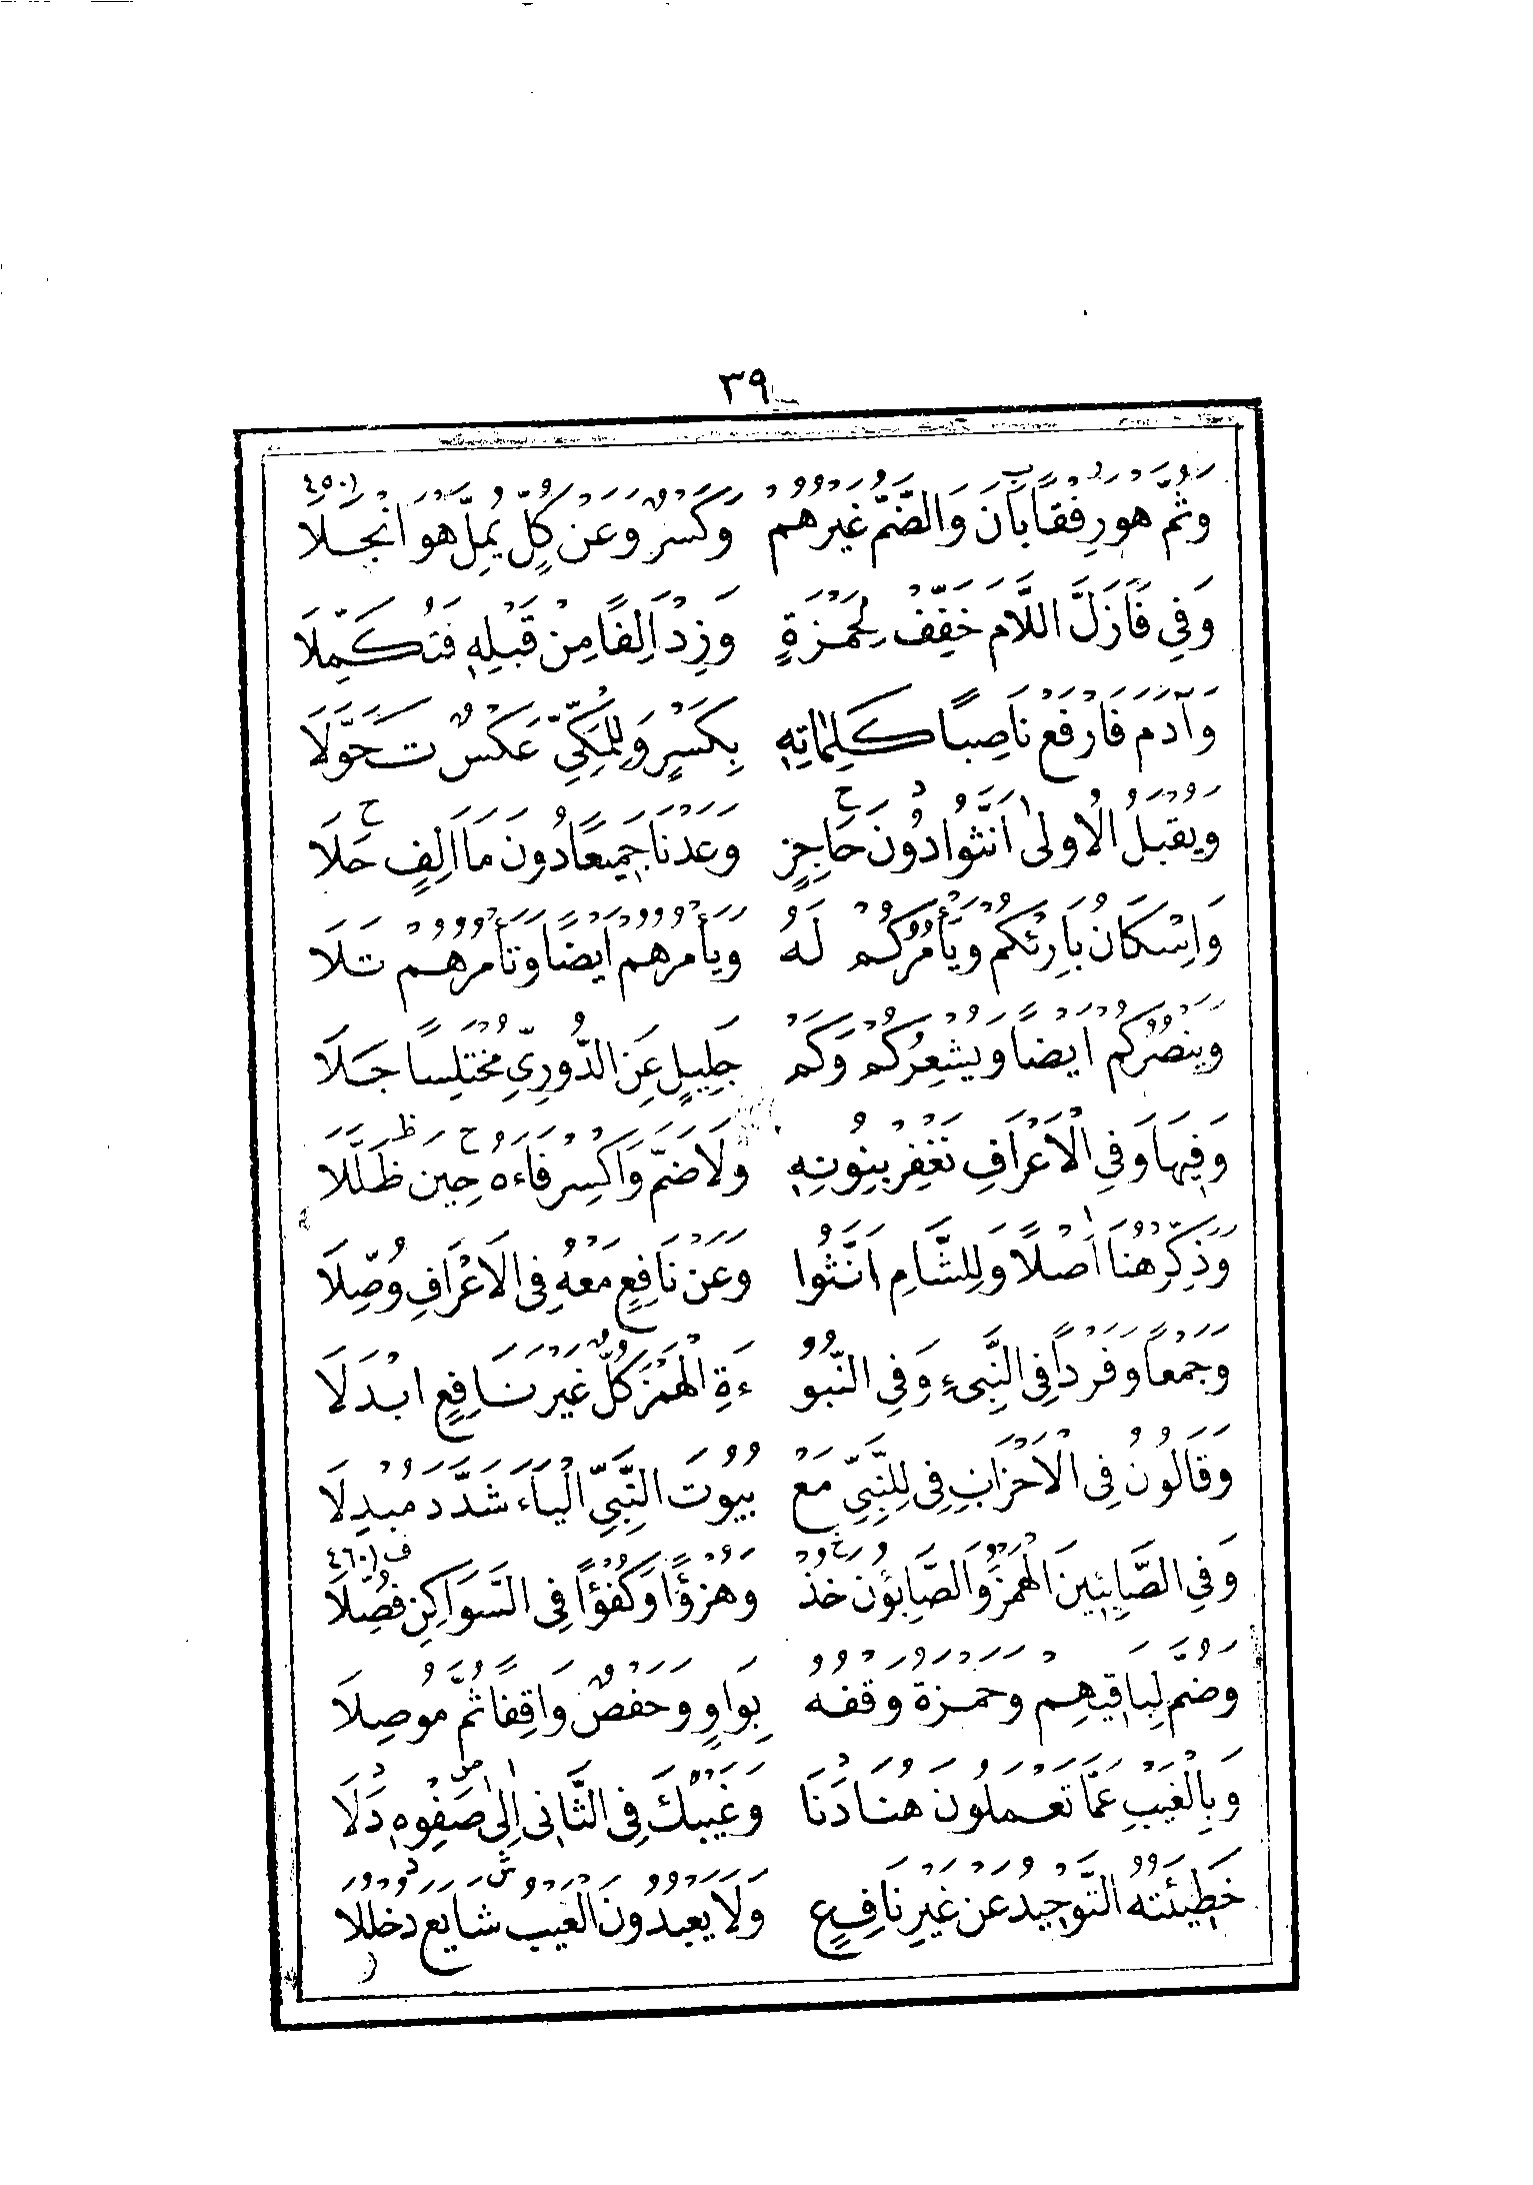 ٣٩
وَثُمَّ هُوَ رِفْقًا بَانَ وَالضَّمُّ غَيْرُهُمْ وَكَسْرٌ وَعَنْ كُلٍّ يُمِلَّ هُوَ انْجَلَا (٤٥٠
وَفِي فَأَزَلَّ اللَّامَ خَفِّفْ لِحَمْزَةٍ وَزِدْ اَلِفًا مِنْ قَبْلِهِ فَتُكَمِّلَا
وَآدَمَ فَارْفَعْ نَاصِبًا كَلِمَاتِهِ بِكَسْرٍ وَلِلْمَكِّيِّ عَكْسٌ تَحَوَّلَا
وَيُقْبَلُ الْاُولٰى اَنَّثُوا دُونَ حَاجِزٍ وَعَدْنَا جَمِيعًا دُونَ مَا اَلِفٍ حَلَا
وَاِسْكَانُ بَارِئْكُمْ وَيَأْمُرُكُمْ لَهُ وَيَأْمُرُهُمْ اَيْضًا وَتَأْمُرُهُمْ تَلَا
وَيَنْصُرُكُمْ اَيْضًا وَيُشْعِرُكُمْ وَكَمْ جَلِيلٍ عَنِ الدُّورِيِّ مُخْتَلِسًا جَلَا
وَفِيهَا وَفِي الْاَعْرَافِ نَغْفِرْ بِنُونِهِ وَلَا ضَمَّ وَاكْسِرْ فَاءَهُ حِينَ ظَلَّلَا
وَذَكِّرْ هُنَا اَصْلًا وَلِلشَّامِ اَنَّثُوا وَعَنْ نَافِعٍ مَعْهُ فِي الْاَعْرَافِ وُصِّلَا
وَجَمْعًا وَفَرْدًا فِي النَّبِيءِ وَفِي النُّبُو ءَةِ الْهَمْزَ كُلٌّ غَيْرَ نَافِعٍ ابْدَلَا
وَقَالُونُ فِي الْاَحْزَابِ فِي لِلنَّبِيِّ مَعْ بُيُوتَ النَّبِيِّ الْيَاءَ شَدَّدَ مُبْدِلَا
وَفِي الصَّابِئِينَ الْهَمْزَ وَالصَّابِئُونَ خُذْ وَهُزْؤًا وَكُفْؤًا فِي السَّوَاكِنِ فُصِّلَا (٤٦٠
وَضُمَّ لِبَاقِيهِمْ وَحَمْزَةُ وَقْفُهُ بِوَاوٍ وَحَفْصٌ وَاقِفًا ثُمَّ مُوصِلَا
وَبِالْغَيْبِ عَمَّا تَعْمَلُونَ هُنَا دَنَا وَغَيْبُكَ فِي الثَّانِي اِلٰى صَفْوِهِ دَلَا
خَطِيئَتُهُ التَّوْحِيدُ عَنْ غَيْرِ نَافِعٍ وَلَا يَعْبُدُونَ الْغَيْبُ شَايَعَ دُخْلُلَا